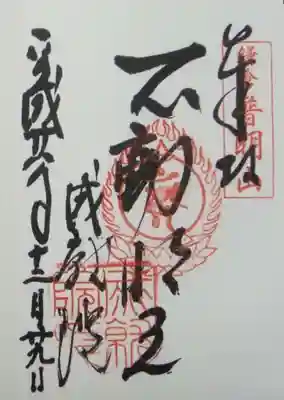 鎌倉普明山
奉拝
不動明王
成就院
平成廿八年十二月廿九日